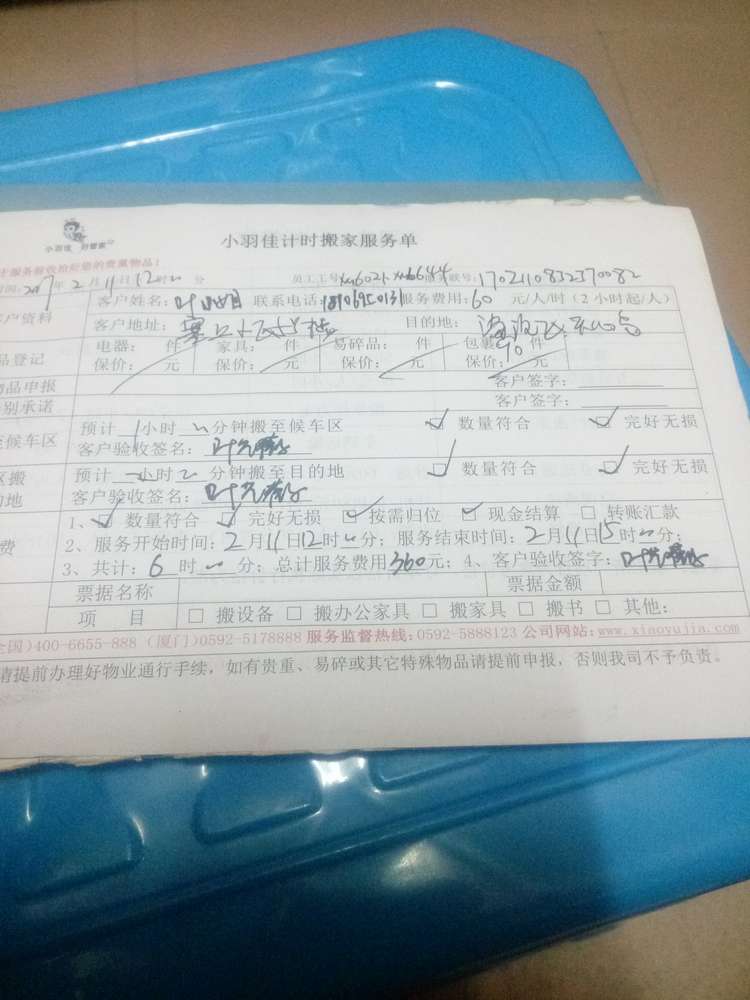 小羽佳 好管家
小羽佳计时搬家服务单
计服务验收给您的贵重物品!
时间:2017年2月11日12时 分 员工工号 xm6021 xm6644 务联号:1702110832370082
客户资料 客户姓名:叶 联系电话: 服务费用:60 元/人/时(2小时起/人)
客户地址: 目的地:
品登记 电器: 件 家具: 件 易碎品: 件 包裹: 10 件
保价: 元 保价: 元 保价: 元 保价: 元
物品申报 客户签字:
别承诺 客户签字:
至候车区 预计 1小时 分钟搬至候车区 ☑ 数量符合 ☑ 完好无损
客户验收签名:叶
区搬 预计 小时 分钟搬至目的地 ☑ 数量符合 ☑ 完好无损
的地 客户验收签名:叶
1、☑ 数量符合 ☑ 完好无损 ☑ 按需归位 ☑ 现金结算 □ 转账汇款
费 2、服务开始时间:2月11日12时 分;服务结束时间:2月11日15时 分;
3、共计:6时 分;总计服务费用360元;4、客户验收签字:叶
票据名称 票据金额
项 目 □ 搬设备 □ 搬办公家具 □ 搬家具 □ 搬书 □ 其他:
全国)400-6655-888 (厦门)0592-5178888 服务监督热线:0592-5888123 公司网站:www.xiaoyujia.com
请提前办理好物业通行手续,如有贵重、易碎或其它特殊物品请提前申报,否则我司不予负责。